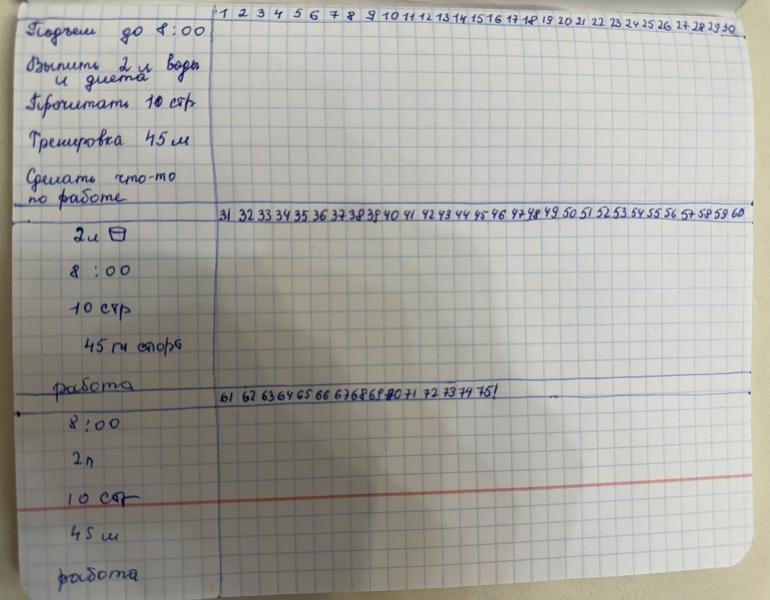 1 2 3 4 5 6 7 8 9 10 11 12 13 14 15 16 17 18 19 20 21 22 23 24 25 26 27 28 29 30
Подъем до 8:00
Выпить 2 л воды
и диета
Прочитать 10 стр
Тренировка 45 м
Сделать что-то
по работе
31 32 33 34 35 36 37 38 39 40 41 42 43 44 45 46 47 48 49 50 51 52 53 54 55 56 57 58 59 60
2 л
8:00
10 стр
45 м спорт
работа
61 62 63 64 65 66 67 68 69 70 71 72 73 74 75!
8:00
2л
10 стр
45 м
работа